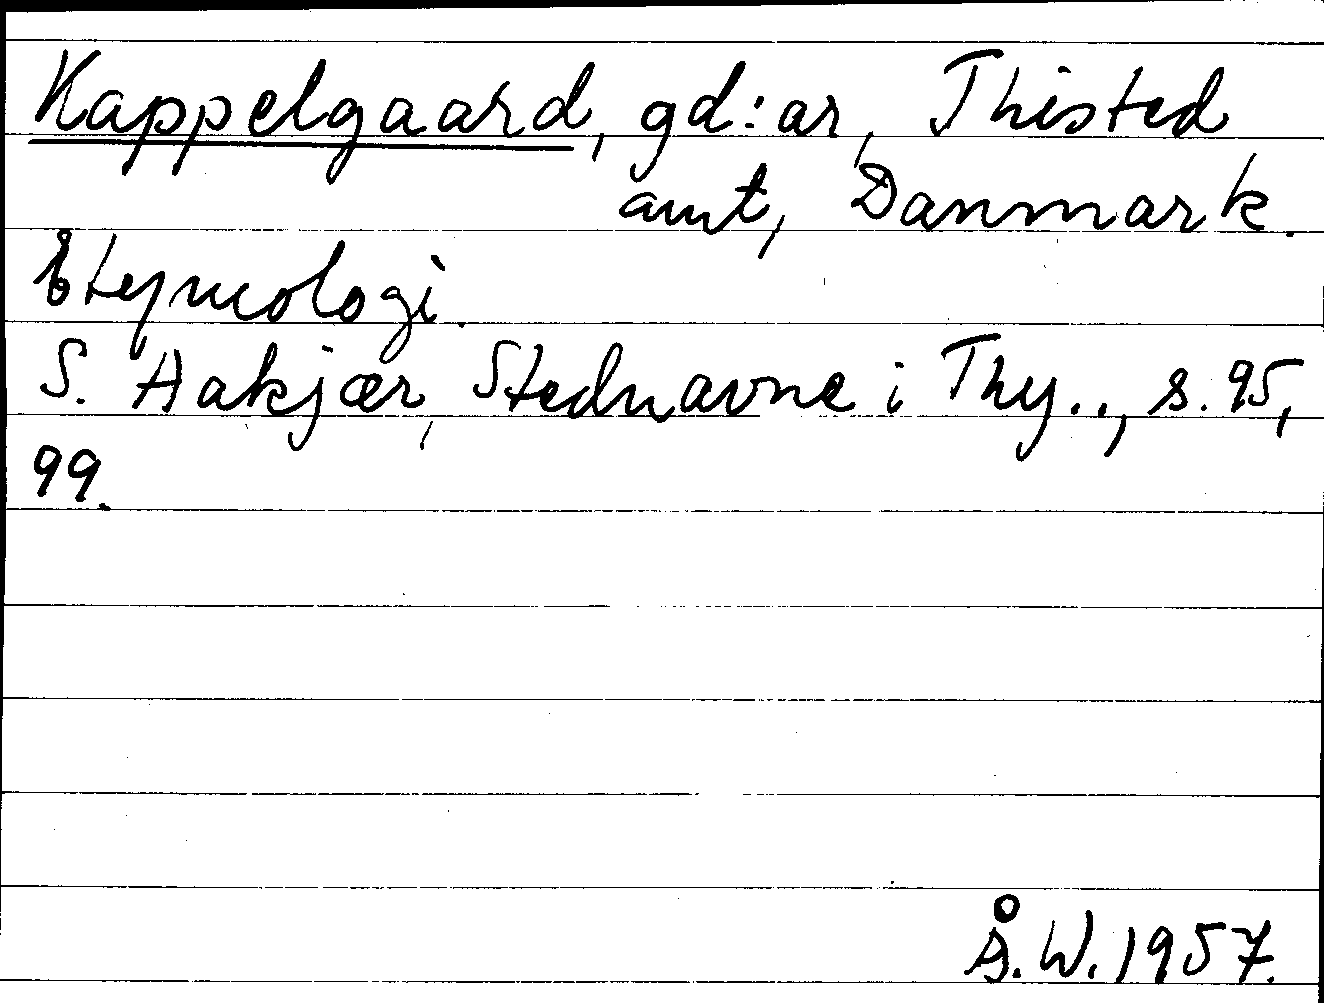 Kappelgaard, gd:ar, Thisted
amt, Danmark.
Etymologi.
S. Aakjær, Stednavne i Thy.., s. 95,
99.
Å.W. 1957.